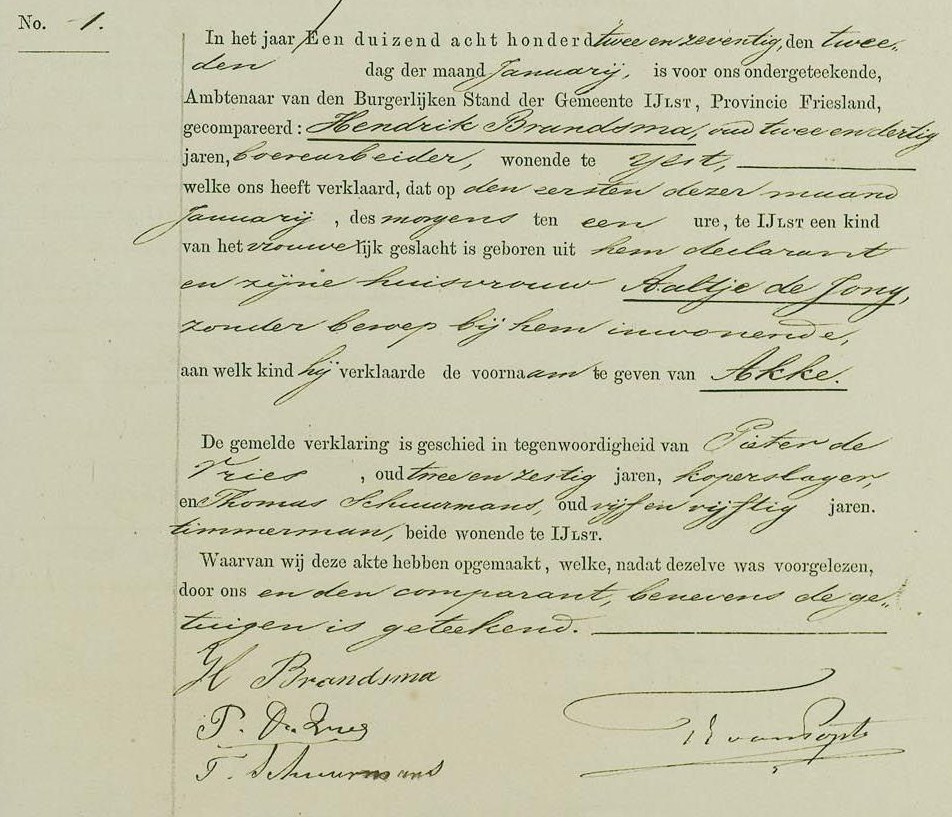 No. 1.
In het jaar Een duizend acht honderd twee en zeventig, den twee„
den dag der maand Januarij, is voor ons ondergeteekende,
Ambtenaar van den Burgerlijken Stand der Gemeente IJLST, Provincie Friesland,
gecompareerd: Hendrik Brandsma, oud twee en dertig
jaren, boerearbeider, wonende te Ylst,
welke ons heeft verklaard, dat op den eersten dezer maand
Januarij, des morgens ten een ure, te IJLST een kind
van het vrouwelijk geslacht is geboren uit hem declarant
en zijne huisvrouw Aaltje de Jong,
zonder beroep bij hem inwonende,
aan welk kind hij verklaarde de voornaam te geven van Akke.
De gemelde verklaring is geschied in tegenwoordigheid van Pieter de
Vries, oud twee en zestig jaren, koperslager,
en Thomas Schuurmans, oud vijf en vijftig jaren.
timmerman, beide wonende te IJLST.
Waarvan wij deze akte hebben opgemaakt, welke, nadat dezelve was voorgelezen,
door ons en den comparant, benevens de ge„
tuigen is geteekend.
H Brandsma
P. De Vries
T. Schuurmans